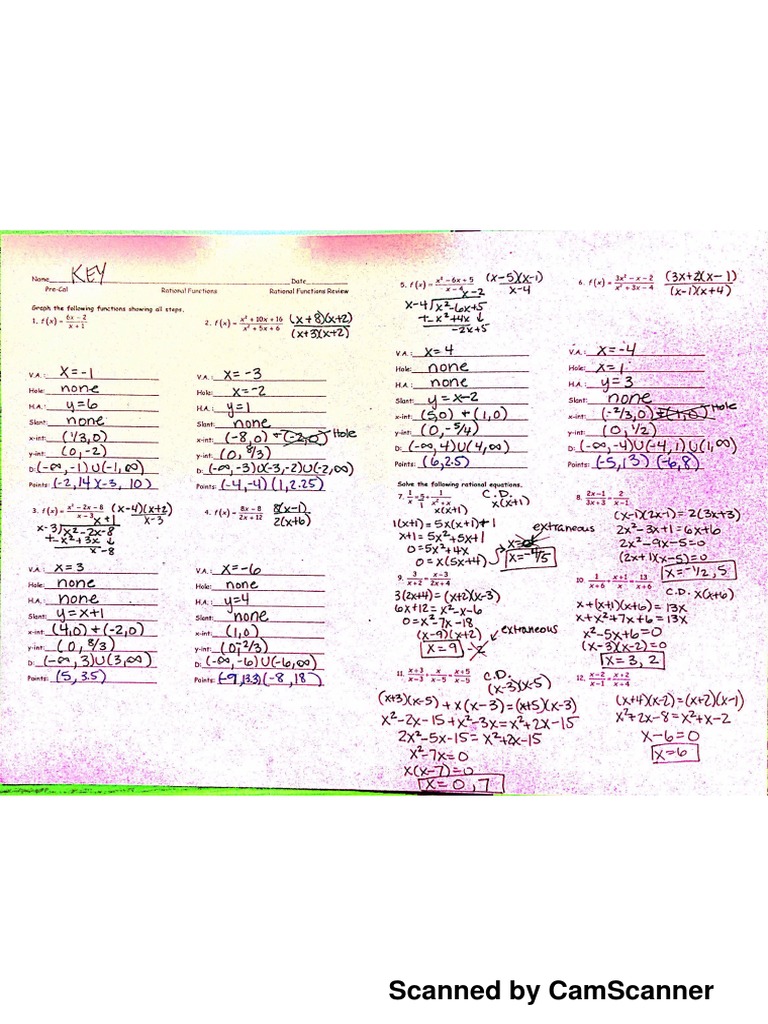 Name KEY Date
Pre-Cal Rational Functions Rational Functions Review
Graph the following functions showing all steps.
1. f(x) = (6x − 2)/(x + 1)
2. f(x) = (x² + 10x + 16)/(x² + 5x + 6) (x+8)(x+2)/(x+3)(x+2)
V.A.: x = -1
Hole: none
H.A.: y = 6
Slant: none
x-int: (1/3, 0)
y-int: (0, -2)
D: (-∞, -1)∪(-1, ∞)
Points: (-2, 14)(-3, 10)
V.A.: x = -3
Hole: x = -2
H.A.: y = 1
Slant: none
x-int: (-8, 0) + (-2, 0) Hole
y-int: (0, 8/3)
D: (-∞, -3)∪(-3, -2)∪(-2, ∞)
Points: (-4, -4) (1, 2.25)
3. f(x) = (x² − 2x − 8)/(x − 3) (x-4)(x+2)/x-3
x+1
x-3 x²-2x-8
+-x²+3x ↓
x-8
4. f(x) = (8x − 8)/(2x + 12) 8(x-1)/2(x+6)
V.A.: x = 3
Hole: none
H.A.: none
Slant: y = x+1
x-int: (4,0) + (-2,0)
y-int: (0, 8/3)
D: (-∞, 3)∪(3, ∞)
Points: (5, 3.5)
V.A.: x = -6
Hole: none
H.A.: y = 4
Slant: none
x-int: (1, 0)
y-int: (0, -2/3)
D: (-∞, -6)∪(-6, ∞)
Points: (-9, 13.3) (-8, 18)
5. f(x) = (x² − 6x + 5)/(x − 4) (x-5)(x-1)/x-4
x-2
x-4 x²-6x+5
+-x²+4x ↓
-2x+5
6. f(x) = (3x² − x − 2)/(x² + 3x − 4) (3x+2)(x-1)/(x-1)(x+4)
V.A.: x = 4
Hole: none
H.A.: none
Slant: y = x-2
x-int: (5,0) + (1,0)
y-int: (0, -5/4)
D: (-∞, 4)∪(4, ∞)
Points: (6, 2.5)
V.A.: x = -4
Hole: x = 1
H.A.: y = 3
Slant: none
x-int: (-2/3, 0) + (1, 0) Hole
y-int: (0, 1/2)
D: (-∞, -4)∪(-4, 1)∪(1, ∞)
Points: (-5, 13) (-6, 8)
Solve the following rational equations.
7. 1/x = 5/1 + 1/(x² + x) C.D. x(x+1)
x(x+1)
1(x+1) = 5x(x+1) + 1
x+1 = 5x²+5x+1
0 = 5x²+4x
0 = x(5x+4)
x = 0 extraneous
x = -4/5
8. (2x − 1)/(3x + 3) = 2/(x − 1)
(x-1)(2x-1) = 2(3x+3)
2x²-3x+1 = 6x+6
2x²-9x-5 = 0
(2x+1)(x-5) = 0
x = -1/2, 5
9. 3/(x + 2) = (x − 3)/(2x + 4)
3(2x+4) = (x+2)(x-3)
6x+12 = x²-x-6
0 = x²-7x-18
(x-9)(x+2)
x = 9 -2 extraneous
10. 1/(x + 6) + (x + 1)/x = 13/(x + 6)
C.D. x(x+6)
x+(x+1)(x+6) = 13x
x+x²+7x+6 = 13x
x²-5x+6 = 0
(x-3)(x-2) = 0
x = 3, 2
11. (x + 3)/(x − 3) + x/(x − 5) = (x + 5)/(x − 5) C.D.
(x-3)(x-5)
(x+3)(x-5) + x(x-3) = (x+5)(x-3)
x²-2x-15 + x²-3x = x²+2x-15
2x²-5x-15 = x²+2x-15
x²-7x = 0
x(x-7) = 0
x = 0, 7
12. (x − 2)/(x − 1) = (x + 2)/(x + 4)
(x+4)(x-2) = (x+2)(x-1)
x²+2x-8 = x²+x-2
x-6 = 0
x = 6
Scanned by CamScanner